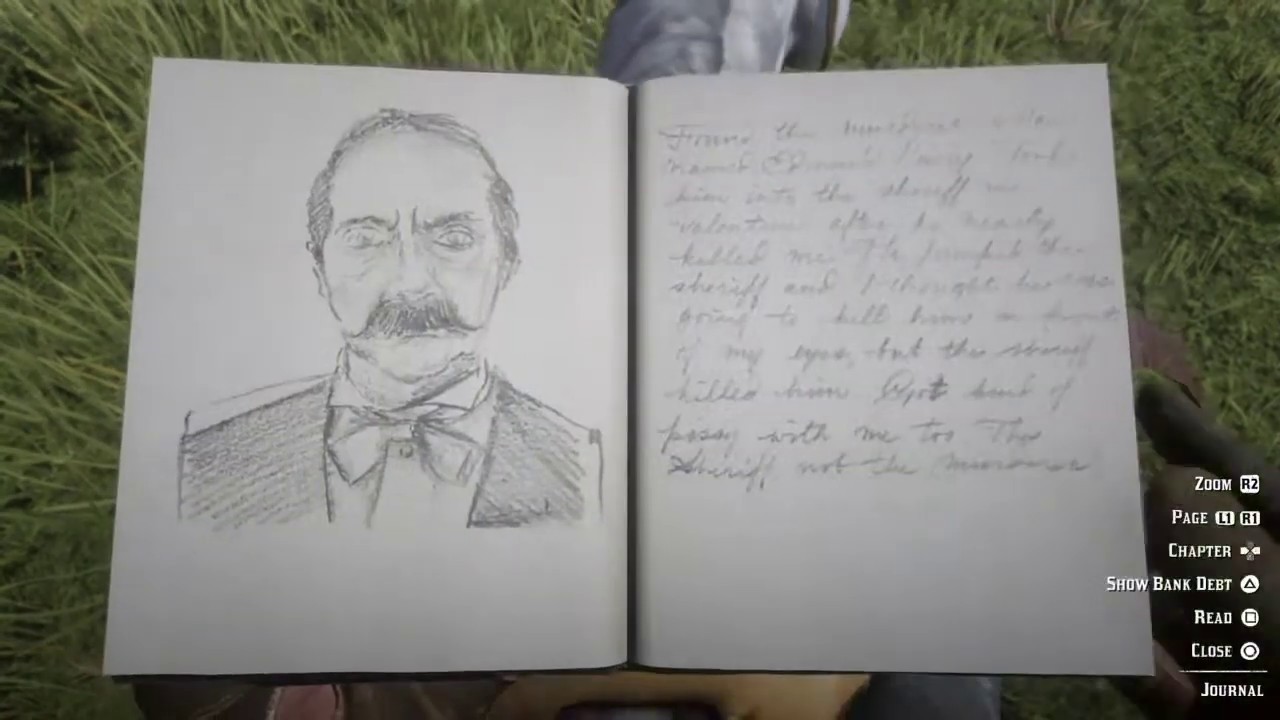 Found the murderer
named Edmund Lowry Took
him into the sheriff in
valentine after he nearly
killed me. He jumped the
sheriff and I thought he was
going to kill him in front
of my eyes, but the sheriff
killed him Got kind of
pissy with me too The
Sheriff not the murderer
ZOOM R2
PAGE L1 R1
CHAPTER
SHOW BANK DEBT
READ
CLOSE
JOURNAL